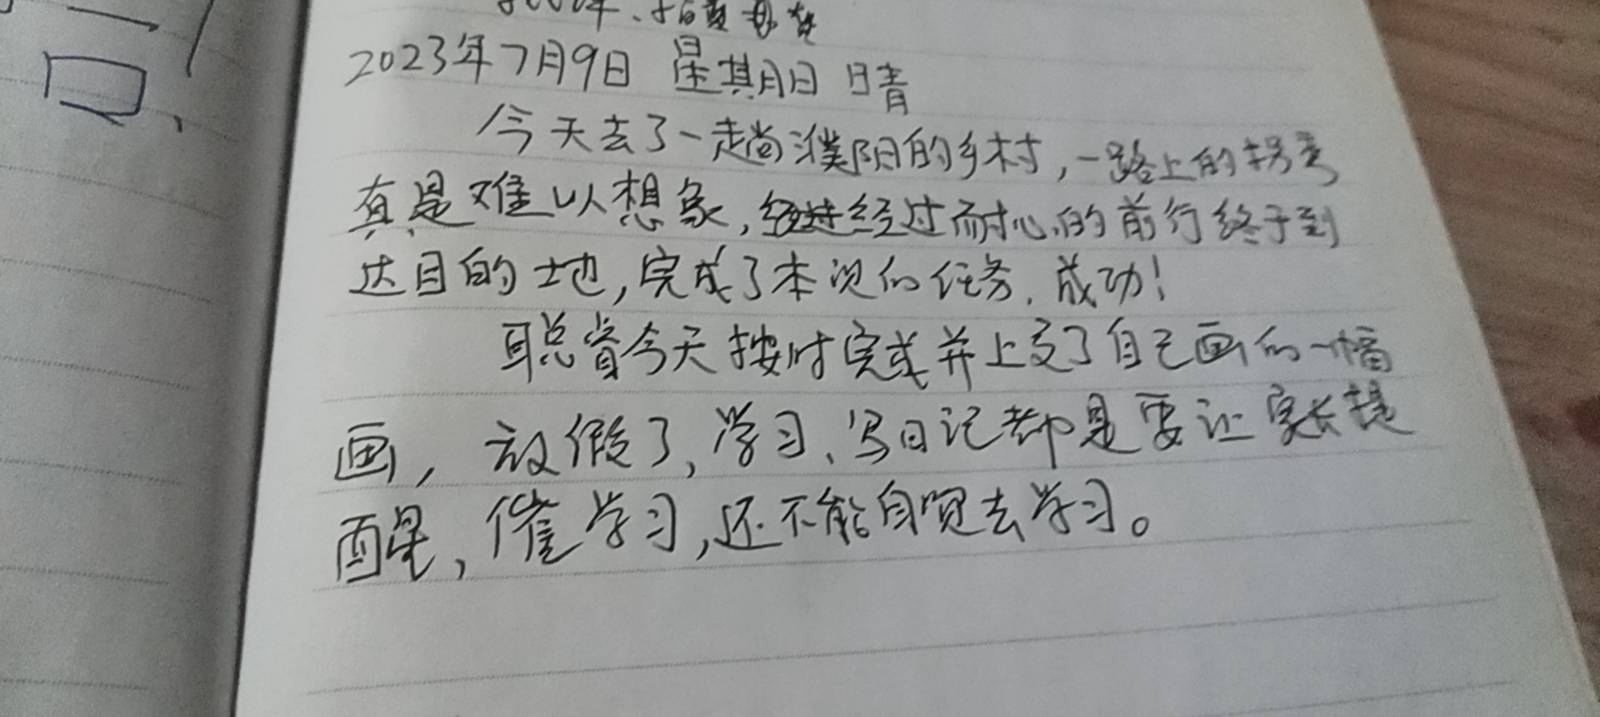 2023年7月9日 星期日 晴
今天去了一趟濮阳的乡村，一路上的拐弯
真是难以想象，经过耐心的前行终于到
达目的土地，完成了本次的任务，成功！
聪睿今天按时完成并上交了自己画的一幅
画，放假了，学习、写日记都是要让家长提
醒，催学习，还不能自觉去学习。